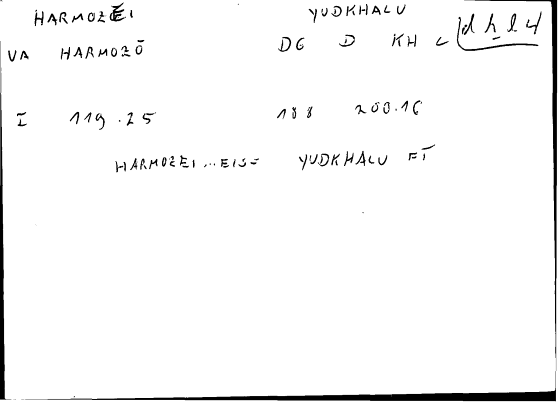 HARMOZEI YUDKHALU
VA HARMOZŌ DG D KH L dḫl 4
I 119.25 188 200.16
HARMOZEI ... EIS= YUDKHALU FĪ